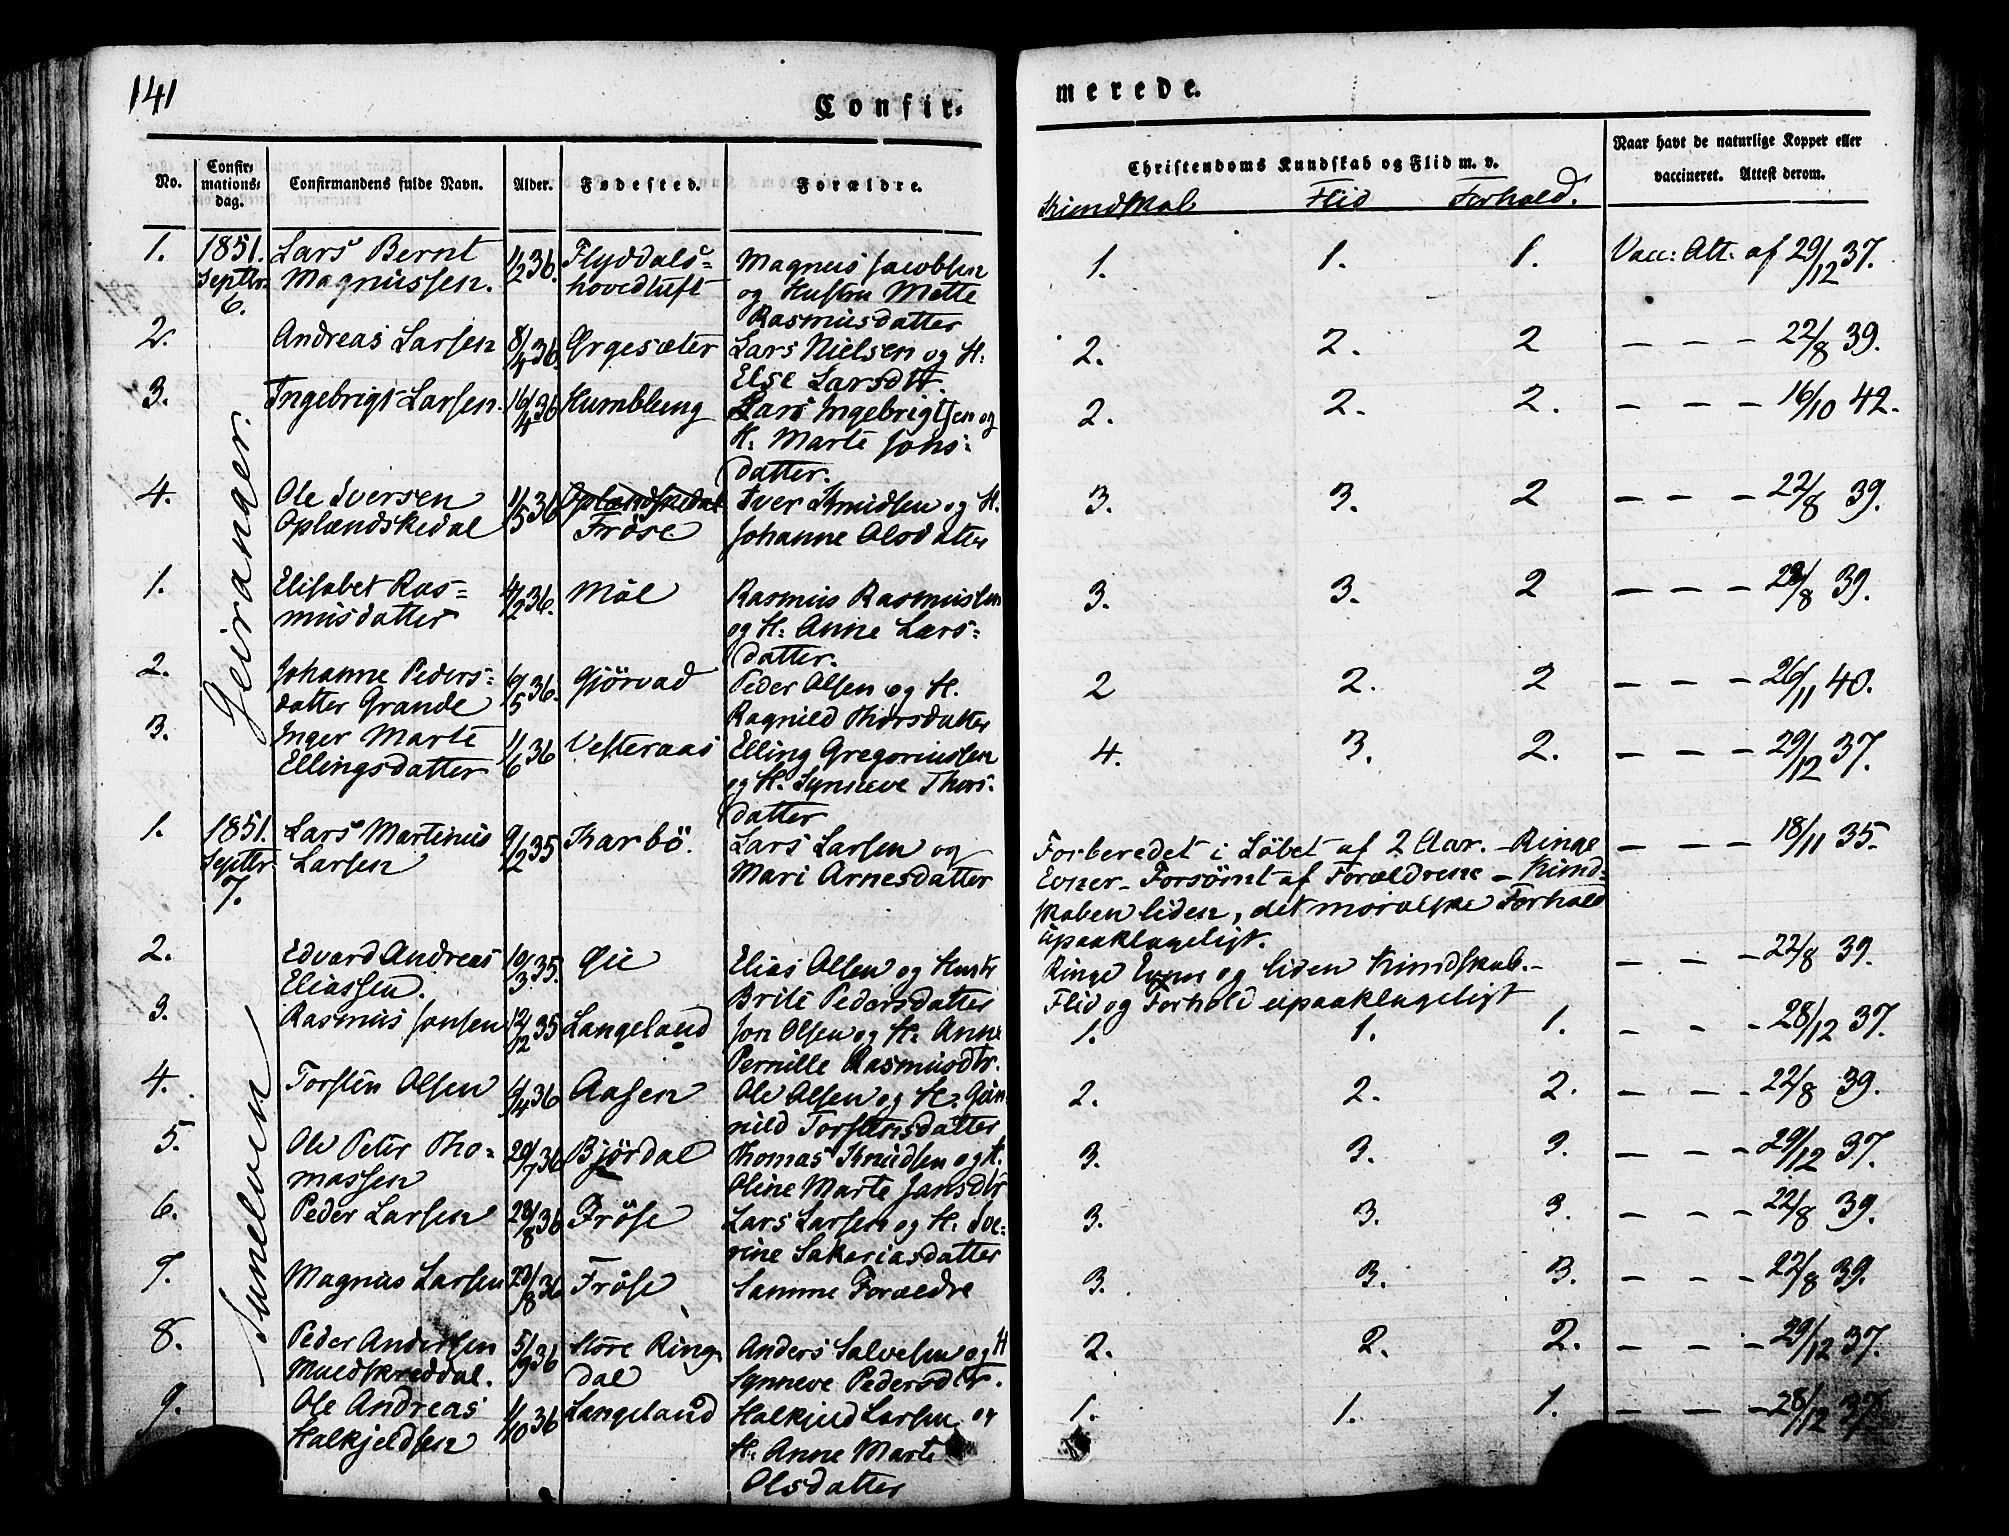 141
Confir-
merede.
No.
Confir-
mations-
dag.
Confirmandens fulde Navn.
Alder.
Fødested.
Forældre.
Christendoms Kundskab og Flid m. v.
Kundskab Flid Forhold.
Naar havt de naturlige Kopper eller
vaccineret. Attest derom.
1. 1851. Lars Bernt 1/2 36. Flyddals= Magnus Jacobsen 1. 1. 1. Vacc: Att: af 29/12 37.
Septbr. Magnussen. hovedtuft og Hustru Mette
6. Rasmusdatter
2. Andreas Larsen 8/4 36 Ørgesæter Lars Nielsen og H: 2. 2. 2 — — — 22/8 39.
Else Larsdtr.
3. Ingebrigt Larsen. 16/4 36 Humblung Lars Ingebrigtsen og 2. 2. 2. — — — 16/10 42.
H: Marte Jons=
datter.
4. Ole Iversen 1/5 36 Oplandskedal Iver Knudsen og H. 3. 3. 2 — — — 22/8 39.
Oplandskedal Frøse Johanne Olsdatter
Geiranger.
1. Elisabet Ras= 4/2 36. Möl Rasmus Rasmussen 3. 3. 2 — — — 28/8 39.
musdatter og H: Anne Lars=
datter.
2. Johanne Peders= 6/5 36. Gjörvad Peder Olsen og H. 2 2. 2 — — — 26/11 40.
datter Grande Ragnild Thorsdatter
3. Inger Marte 1/6 36 Vesteraas Elling Gregoriussen 4. 3. 2. — — — 29/12 37.
Ellingsdatter og H. Synneve Thors=
datter
1. 1851. Lars Martinus 9/2 35 Karbö. Lars Larsen og Forberedet i Löbet af 2 Aar. – Ringe — — — 18/11 35.
Septbr. Larsen Mari Arnesdatter Evner – Forsömt af Forældrene – Kund=
7. skaben liden, det moralske Forhold
upaaklageligt.
2. Edvard Andreas 10/3 35. Øie Elias Olsen og Hustr Ringe Evne og liden Kundskab. – — — — 22/8 39.
Eliassen. Brite Pedersdatter Flid og Forhold upaaklageligt
3. Rasmus Jonsen 12/12 35 Langeland Jon Olsen og H: Anne 1. 1. 1. — — — 28/12 37.
Pernille Rasmusdtr.
4. Torsten Olsen 4/4 36 Aasen Ole Olsen og H. Gun= 2. 2. 2. — — — 22/8 39.
nild Torstensdatter
Sunelven
5. Ole Peter Tho= 20/7 36 Björdal Thomas Knudsen og H. 3. 3. 3. — — — 29/12 37.
massen Oline Marte Jansdtr
6. Peder Larsen 28/8 36 Fröse Lars Larsen og H: Se= 3. 3. 3. — — — 22/8 39.
rine Sakariasdatter
7. Magnus Larsen 28/8 36 Fröse Samme Forældre 3. 3. 3. — — — 22/8 39.
8. Peder Andersen 5/9 36 Store Ring= Anders Salvesen og H 2. 2. 2. — — — 29/12 37.
Muldskreddal. dal Synneve Pedersdtr.
9. Ole Andreas 1/10 36 Langeland Halkjeld Larsen og 1. 1. 1. — — — 28/12 37.
Halkjeldsen H: Anne Marte
Olsdatter